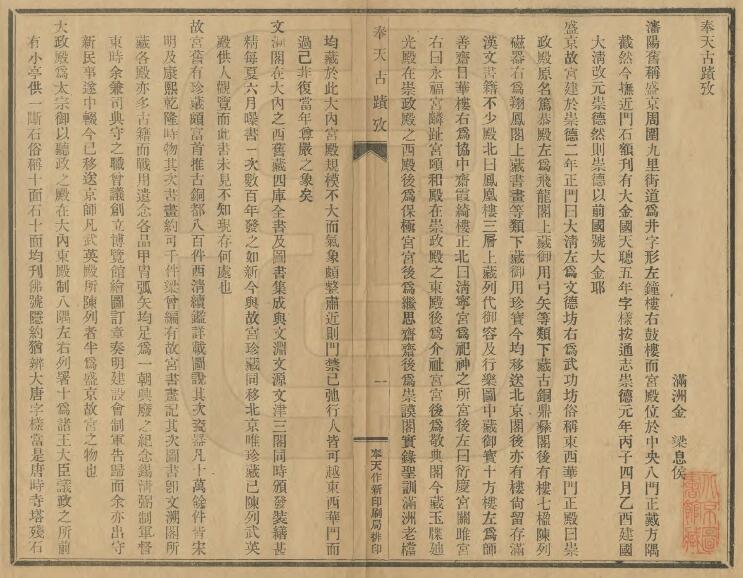 奉天古蹟攷
滿洲金 梁息侯
瀋陽舊稱盛京周圍九里街道爲井字形左鐘樓右鼓樓而宮殿位於中央八門正戴方隅
截然今撫近門石額刊有大金國天聰五年字樣按通志崇德元年丙子四月乙酉建國
大清改元崇德然則崇德以前國號大金耶
盛京故宮建於崇德二年正門曰大清左爲文德坊右爲武功坊俗稱東西華門正殿曰崇
政殿原名篤恭殿左爲飛龍閣上藏御用弓矢等類下藏古銅鼎彝閣後有樓七楹陳列
磁器右爲翔鳳閣上藏書畫等類下藏御用珍寶今均移送北京閣後亦有樓尙留存滿
漢文書籍不少殿北曰鳳凰樓三層上藏列代御容及行樂圖中藏御寶十方樓左爲師
善齋日華樓右爲協中齋霞綺樓正北曰清寧宮爲祀神之所宮後左曰衍慶宮關雎宮
右曰永福宮麟趾宮頤和殿在崇政殿之東殿後爲介祉宮宮後爲敬典閣今藏玉牒迪
光殿在崇政殿之西殿後爲保極宮宮後爲繼思齋齋後爲崇謨閣實錄聖訓滿洲老檔
奉天古蹟攷
一
奉天作新印刷局排印
均藏於此大內宮殿規模不大而氣象頗整肅近則門禁已弛行人皆可越東西華門而
過已非復當年尊嚴之象矣
文溯閣在大內之西舊藏四庫全書及圖書集成與文淵文源文津三閣同時頒發裝繕甚
精每夏六月曝書一次數百年發之如新今與故宮珍藏同移北京唯珍藏已陳列武英
殿供人觀覽而此書未見不知現存何處也
故宮舊有珍藏頗富首推古銅都八百件西清續鑑詳載圖說其次瓷器凡十萬餘件皆宋
明及康熙乾隆時物其次書畫約可千件梁曾編有故宮書畫記其次圖書卽文溯閣所
藏各殿亦多古籍而戰用遺念各品甲冑弧矢均足爲一朝興廢之紀念錫清弼制軍督
東時余兼司典守之職曾議創立博覽館繪圖訂章奏明建設會制軍告歸而余亦出守
新民事遂中輟今已移送京師凡武英殿所陳列者半爲盛京故宮之物也
大政殿爲太宗御以聽政之殿在大內東殿制八隅左右列署十爲諸王大臣議政之所前
有小亭供一斷石俗稱十面石十面均刊佛號隱約猶辨大唐字樣當是唐時寺塔殘石